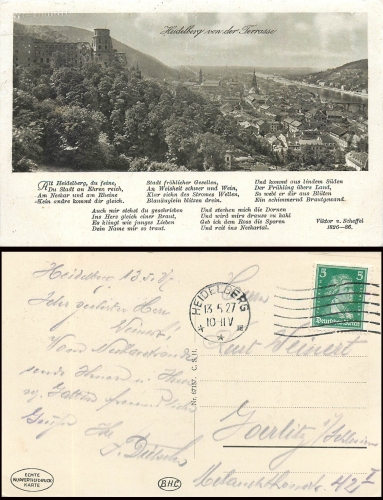 Heidelberg von der Terrasse
Alt Heidelberg, du feine,
Du Stadt an Ehren reich,
Am Neckar und am Rheine
Kein andre kommt dir gleich.
Stadt fröhlicher Gesellen,
An Weisheit schwer und Wein,
Klar ziehn des Stromes Wellen,
Blauäuglein blitzen drein.
Und kommt aus lindem Süden
Der Frühling übers Land,
So webt er dir aus Blüten
Ein schimmernd Brautgewand.
Auch mir stehst du geschrieben
Ins Herz gleich einer Braut,
Es klingt wie junges Lieben
Dein Name mir so traut.
Und stechen mich die Dornen
Und wird mirs drauss zu kahl
Geb ich dem Ross die Sporen
Und reit ins Neckartal.
Viktor v. Scheffel
1826-86.
Heidelberg, 13.5.27
Sehr geehrter Herr
Weinert!
Vom Neckarstrande
sende Ihnen u. Ihrer
Grüße Ihr
HEIDELBERG
13 5.27
10-11 V
5 5
Deutsches Reich
Herrn
Kurt Weinert
Goerlitz/Schlesien
Melanchthonstr. 42 I
Nr. 67157 C. S. H.
ECHTE
KUPFERTIEFDRUCK
KARTE
B.H.L.